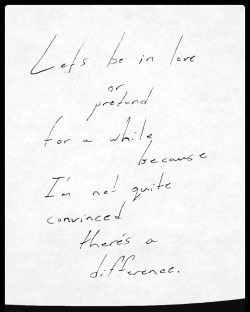 Let's be in love
or
pretend
for a while
because
I'm not quite
convinced
there's a
difference.